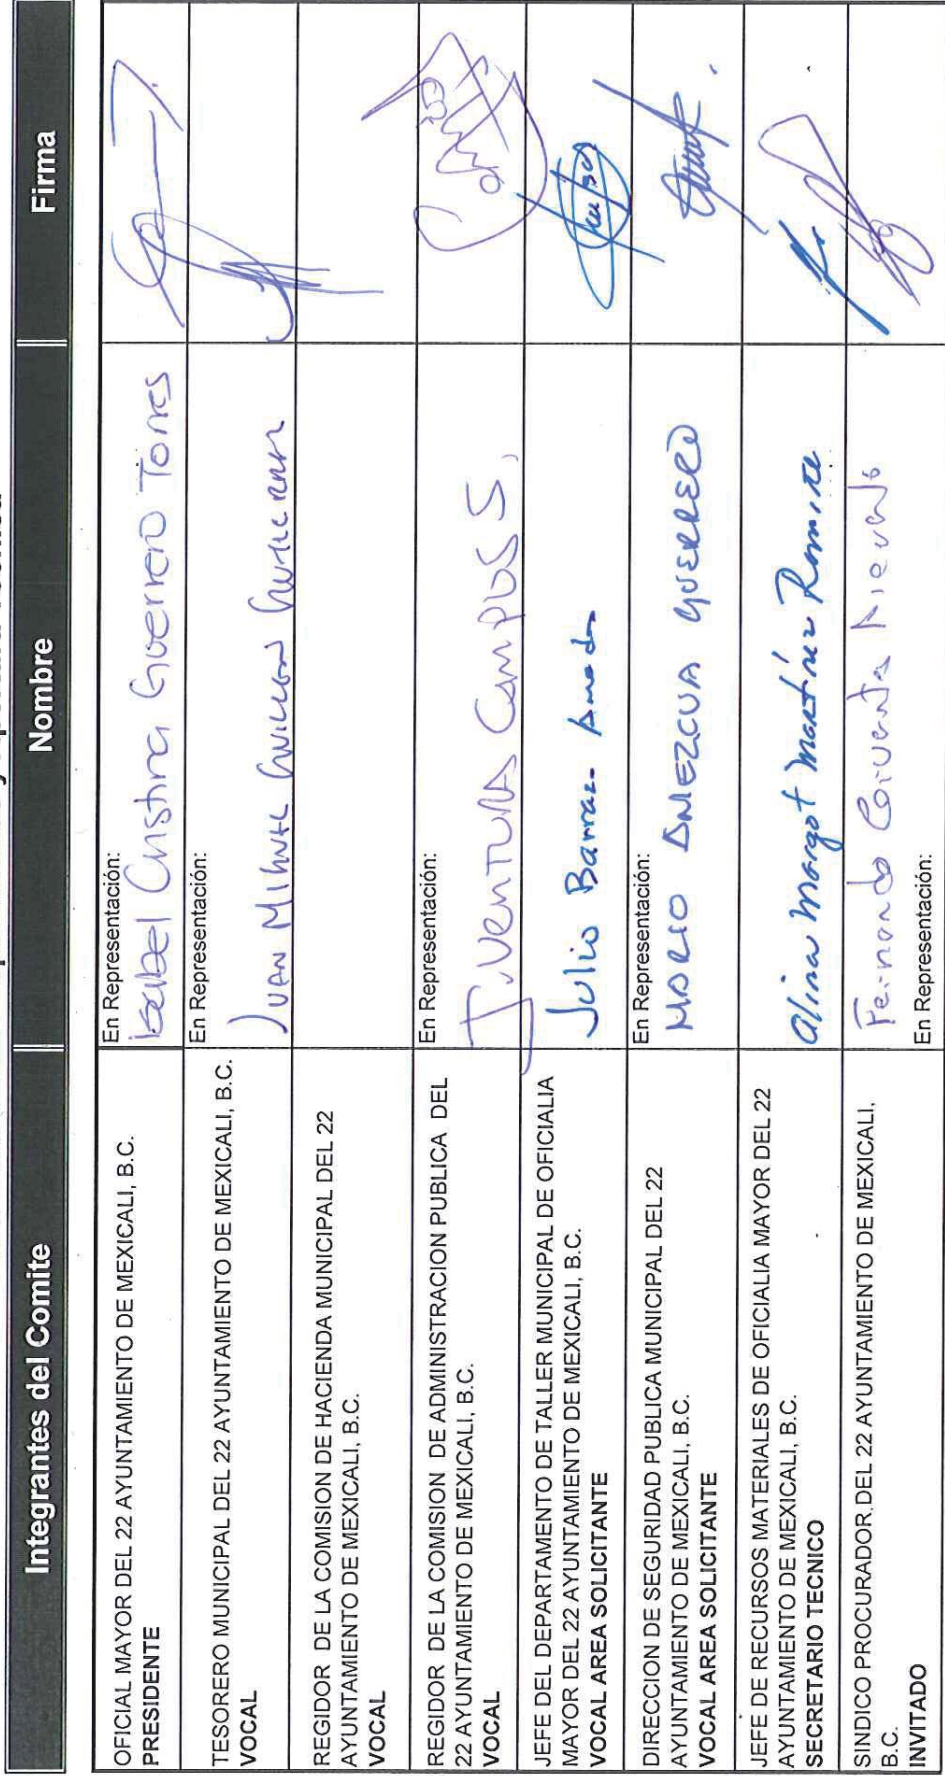 Integrantes del Comite Nombre Firma
OFICIAL MAYOR DEL 22 AYUNTAMIENTO DE MEXICALI, B.C.
PRESIDENTE
En Representación:
Isabel Cristina Guerrero Torres
TESORERO MUNICIPAL DEL 22 AYUNTAMIENTO DE MEXICALI, B.C.
VOCAL
En Representación:
JUAN MIGUEL GUILLEN
REGIDOR DE LA COMISION DE HACIENDA MUNICIPAL DEL 22
AYUNTAMIENTO DE MEXICALI, B.C.
VOCAL
REGIDOR DE LA COMISION DE ADMINISTRACION PUBLICA DEL
22 AYUNTAMIENTO DE MEXICALI, B.C.
VOCAL
En Representación:
J. VENTURA CAMPOS S.
JEFE DEL DEPARTAMENTO DE TALLER MUNICIPAL DE OFICIALIA
MAYOR DEL 22 AYUNTAMIENTO DE MEXICALI, B.C.
VOCAL AREA SOLICITANTE
Julio Barraza Amador
DIRECCION DE SEGURIDAD PUBLICA MUNICIPAL DEL 22
AYUNTAMIENTO DE MEXICALI, B.C.
VOCAL AREA SOLICITANTE
En Representación:
MARIO AMEZCUA GUERRERO
JEFE DE RECURSOS MATERIALES DE OFICIALIA MAYOR DEL 22
AYUNTAMIENTO DE MEXICALI, B.C.
SECRETARIO TECNICO
Alina Margot Martínez
SINDICO PROCURADOR DEL 22 AYUNTAMIENTO DE MEXICALI,
B.C.
INVITADO
Fernando Cervantes
En Representación: